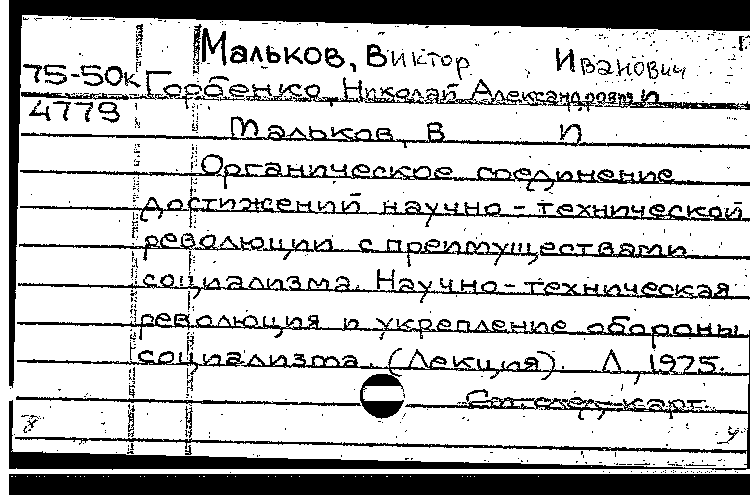 Мальков, Виктор Иванович
75-50к Горбенко, Николай Александрович и
4779 Мальков, В И
Органическое соединение
достижений научно-технической
революции с преимуществами
социализма. Научно-техническая
революция и укрепление обороны
социализма. (Лекция). Л., 1975.
См. след. карт.